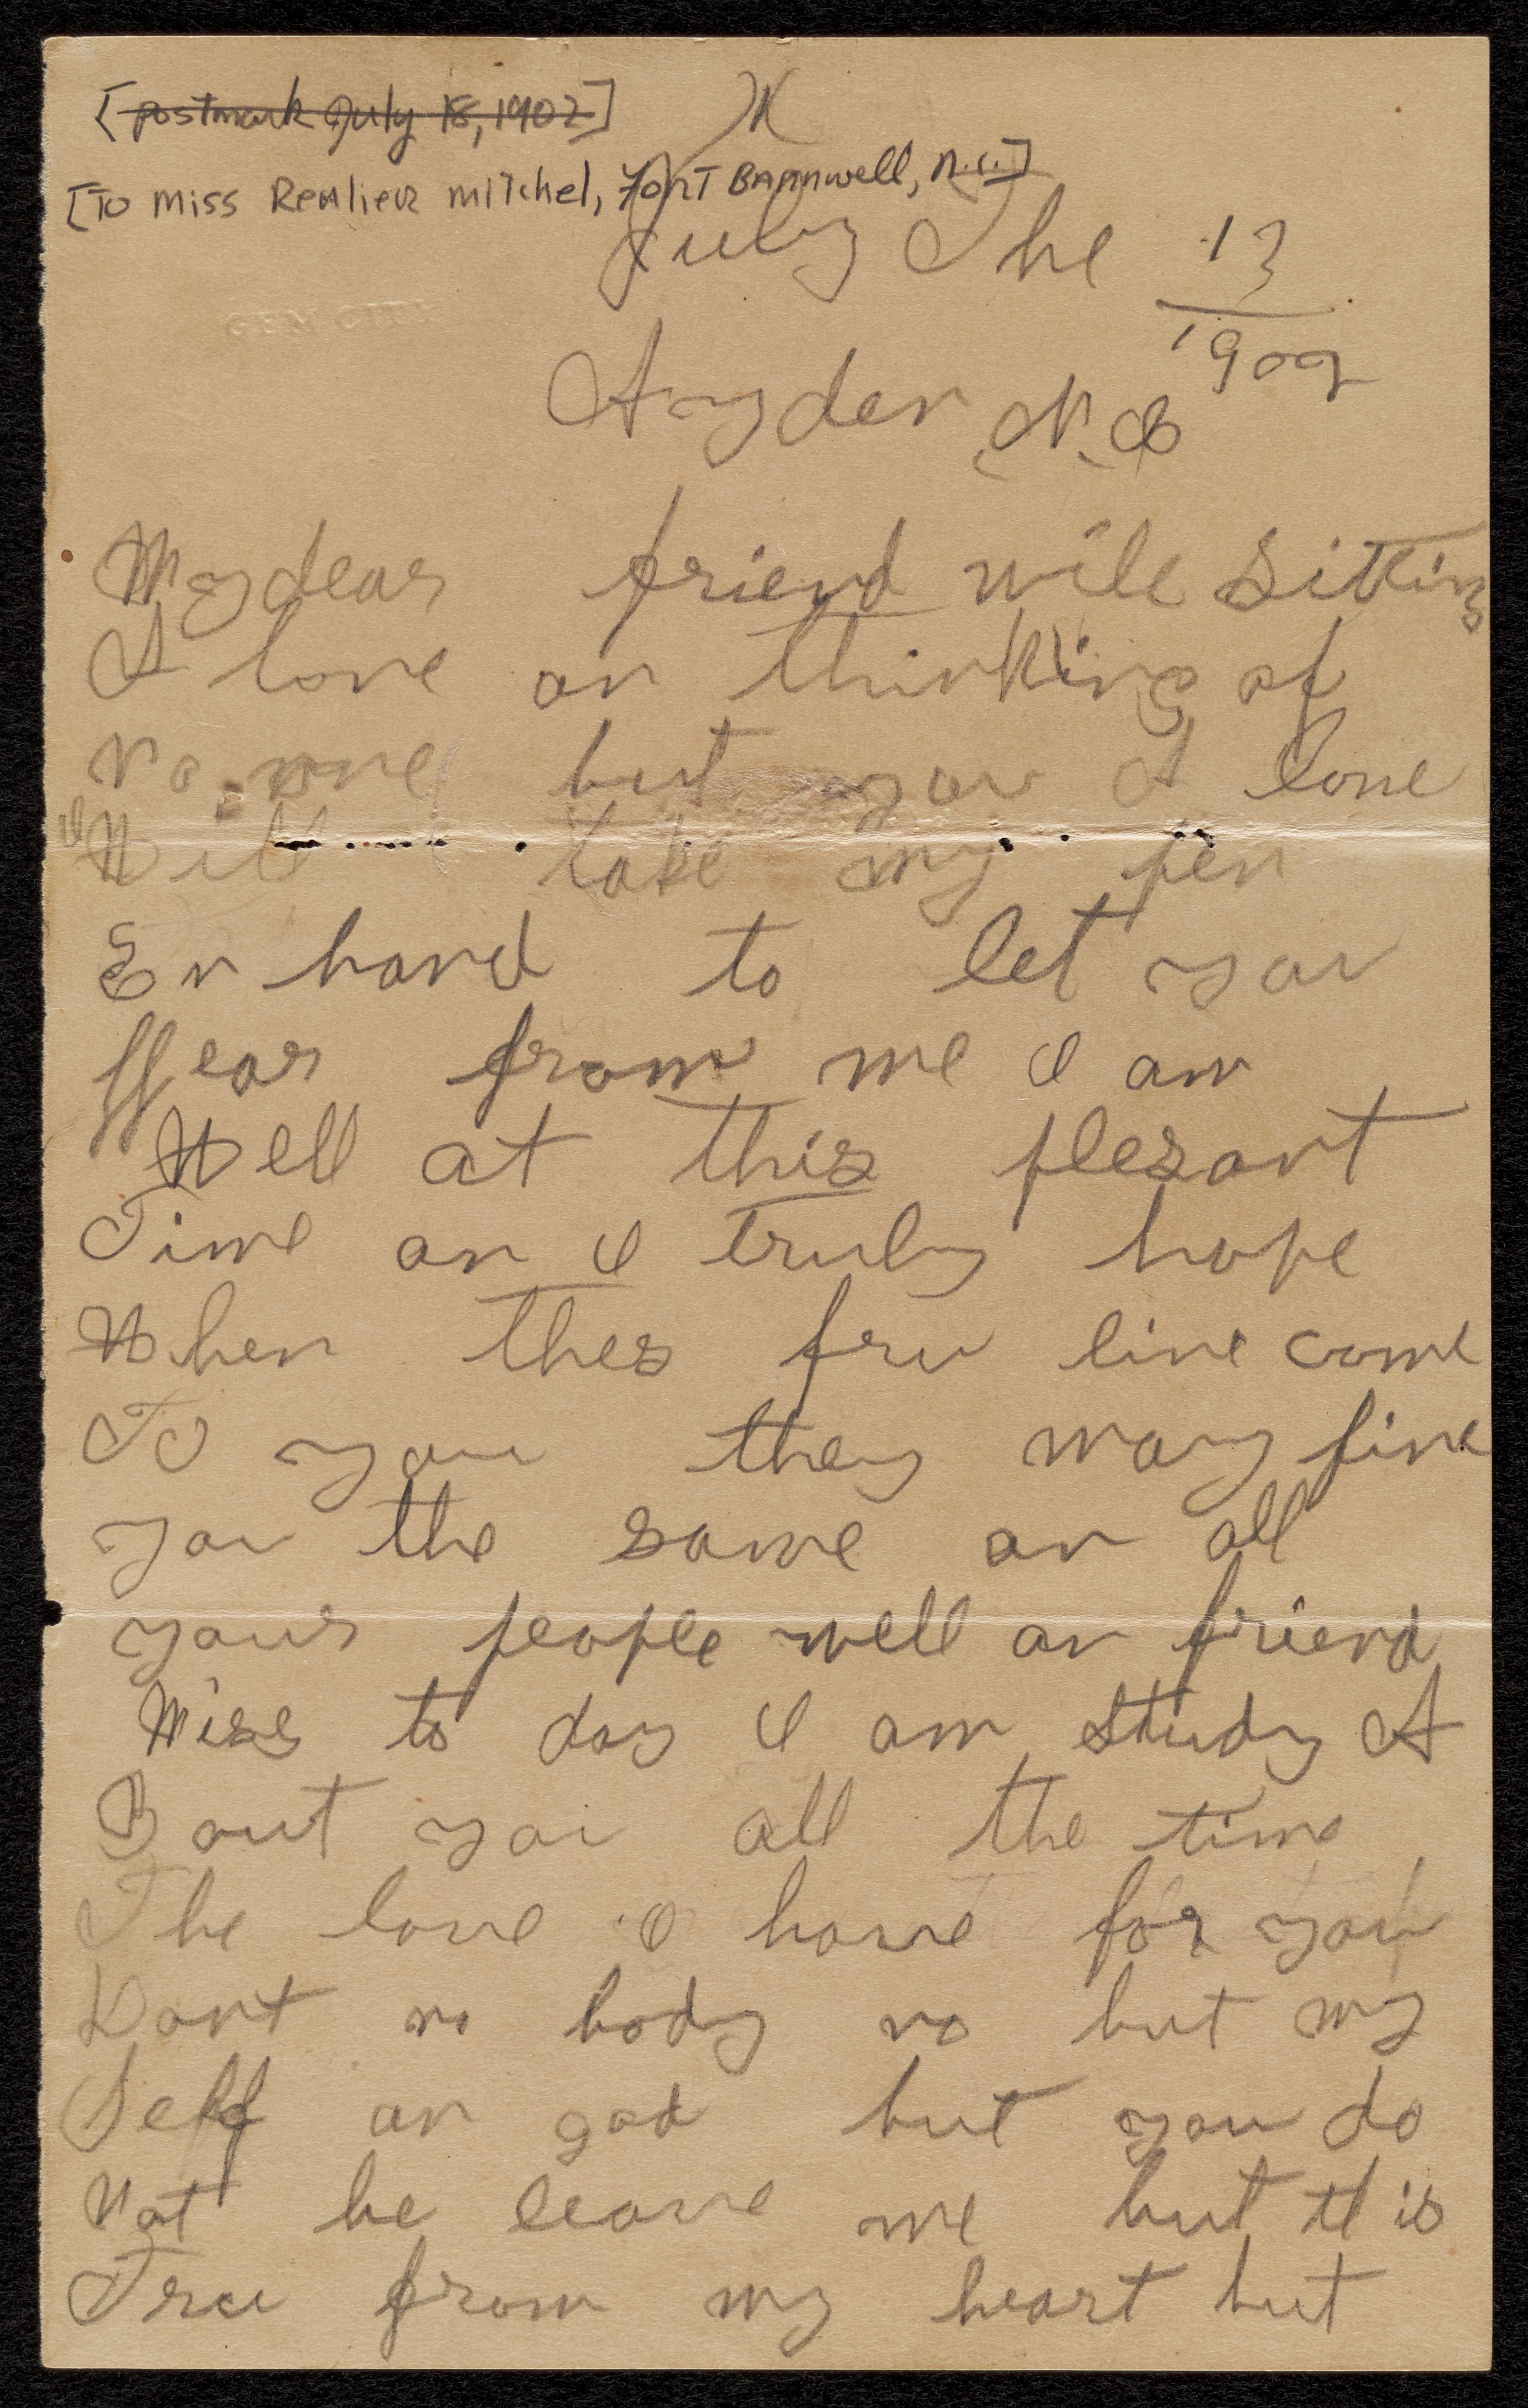 [postmark July 18, 1902]
[To Miss Realieur Mitchel, Fort Barnwell, N.C.]
July The 13
1902
Ayden N. C
My dear friend wile sitting
A lone an thinking of
No one but you A lone
I Will take my pen
En hand to let you
Hear from me I am
Well at this plesant
Time an I truly hope
When thes fru line come
To you they may fine
you the same an all
your people well an friend
Miss to day I am study A
Bout you all the time
The love I have for you
Dont no body no but my
Self an god but you do
Not be leave me but it is
True from my heart but